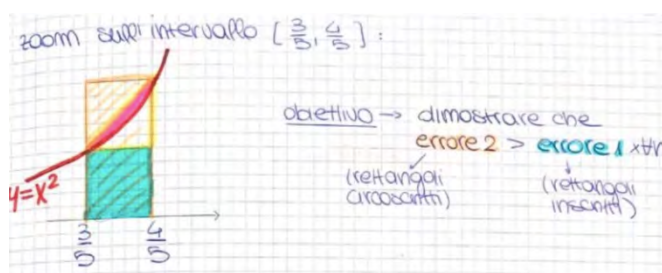 zoom sull'intervallo [3/5, 4/5] :
obiettivo → dimostrare che
errore 2 > errore 1 x∀n
(rettangoli circoscritti)
(rettangoli inscritti)
y=x²
3/5
4/5